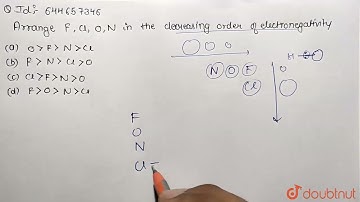 Q Id:- 644657346
Arrange F, Cl, O, N in the decreasing order of electronegativity
(a) O > F > N > Cl
(b) F > N > Cl > O
(c) Cl > F > N > O
(d) F > O > N > Cl
H
N O F
Cl
F
O
N
Cl
doubtnut